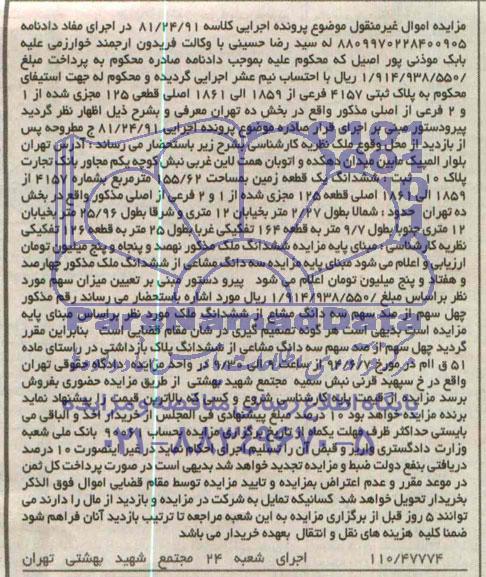 مزایده اموال غیرمنقول موضوع پرونده اجرایی کلاسه ۸۱/۲۴/۹۱ در اجرای مفاد دادنامه
۸۸۰۹۹۷۰۲۲۸۴۰۰۹۰۵ له سید رضا حسینی با وکالت فریدون ارجمند خوارزمی علیه
بابک موذنی پور اصیل که محکوم علیه بموجب دادنامه صادره محکوم به پرداخت مبلغ
۱/۹۱۴/۹۳۸/۵۵۰/ ریال با احتساب نیم عشر اجرایی گردیده و محکوم له جهت استیفای
محکوم به پلاک ثبتی ۴۱۵۷ فرعی از ۱۸۵۹ الی ۱۸۶۱ اصلی قطعه ۱۲۵ مجزی شده از ۱
و ۲ فرعی از اصلی مذکور واقع در بخش ده تهران معرفی و بشرح ذیل اظهار نظر گردید
پیرودستور مبنی بر اجرای قرار صادره موضوع پرونده اجرایی ۸۱/۲۴/۹۱ ج مطروحه پس
از بازدید از محل وقوع ملک نظریه کارشناسی بشرح زیر باستحضار می رساند: آدرس تهران
بلوار المپیک مابین میدان دهکده و اتوبان همت لاین غربی نبش کوچه یکم مجاور بانک تجارت
پلاک ۱۰ ثبت: ششدانگ یک قطعه زمین بمساحت ۲۵۵/۶۲ مترمربع بشماره ۴۱۵۷ از
۱۸۵۹ الی ۱۸۶۱ اصلی قطعه ۱۲۵ مجزی شده از ۱ و ۲ فرعی از اصلی مذکور واقع در بخش
ده تهران حدود: شمالا بطول ۷/۲۷ متر بخیابان ۱۲ متری و شرقا بطول ۲۵/۹۶ متر بخیابان
۱۲ متری جنوبا بطول ۹/۷ متر به قطعه ۱۶۴ تفکیکی غربا بطول ۲۵ متر به قطعه ۱۲۶ تفکیکی
نظریه کارشناسی: مبنای پایه مزایده ششدانگ ملک مذکور نهصد و پنجاه و پنج میلیون تومان
ارزیابی و اعلام می شود مبنای پایه مزایده سه دانگ مشاعی از ششدانگ ملک مذکور چهارصد
و هفتاد و پنج میلیون تومان اعلام می شود پیرو دستور مبنی بر تعیین میزان سهم مورد
نظر براساس مبلغ ۱/۹۱۴/۹۳۸/۵۵۰/ ریال مورد اشاره باستحضار می رساند رقم مذکور
چهل سهم از صد سهم سه دانگ مشاع از ششدانگ ملک مورد نظر براساس مبنای پایه
مزایده است بدیهی است هر گونه تصمیم گیری در شان مقام قضایی است بنابراین مقرر
گردید چهل سهم از صد سهم سه دانگ مشاعی از ششدانگ پلاک بازداشتی در راستای ماده
۵۱ ق اام در مورخ ۹۴/۶/۷ از ساعت ۹ الی ۹/۵ در واحد مزایده دادگاه حقوقی تهران
واقع در خ سپهبد قرنی نبش سمیه مجتمع شهید بهشتی از طریق مزایده حضوری بفروش
برسد مزایده از قیمت پایه کارشناسی شروع و کسی که بالاترین قیمت را پیشنهاد نماید
برنده مزایده خواهد بود ۱۰ درصد مبلغ پیشنهادی فی المجلس از خریدار اخذ و الباقی می
بایستی حداکثر ظرف مهلت یکماه از تاریخ برگزاری مزایده بحساب بانک ملی شعبه
وزارت دادگستری واریز و قبض آن را تسلیم اجرای احکام نماید در غیر اینصورت ۱۰ درصد
دریافتی بنفع دولت ضبط و مزایده تجدید خواهد شد بدیهی است در صورت پرداخت کل ثمن
در موعد مقرر و عدم اعتراض بمزایده و تایید مزایده توسط مقام قضایی اموال فوق الذکر
بخریدار تحویل خواهد شد کسانیکه تمایل به شرکت در مزایده و بازدید از مال را دارند می
توانند ۵ روز قبل از برگزاری مزایده به این شعبه مراجعه تا ترتیب بازدید آنان فراهم شود
ضمنا کلیه هزینه های نقل و انتقال بعهده خریدار می باشد
۱۱۰/۴۷۷۷۴ اجرای شعبه ۲۴ مجتمع شهید بهشتی تهران
۰۲۱-۸۸۳۴۹۶۷۰-۵